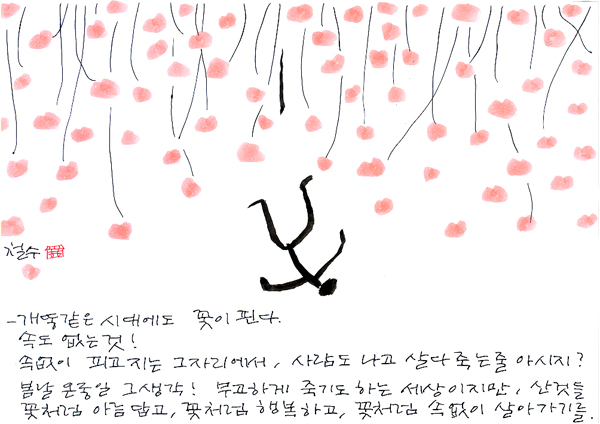 철수
-개똥같은 시대에도 꽃이 핀다.
속도 없는것!
속없이 피고지는 그자리에서, 사람도 나고 살다 죽는줄 아시지?
봄날 온종일 그생각! 무고하게 죽기도하는 세상이지만, 산것들
꽃처럼 아름답고, 꽃처럼 행복하고, 꽃처럼 속없이 살아가기를.